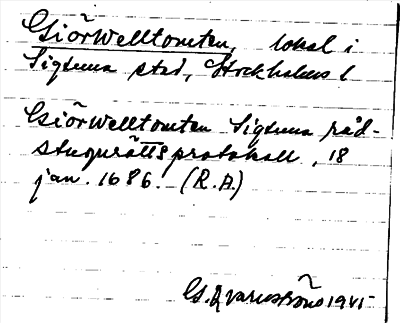 Giörwelltomten, lokal i
Sigtuna stad, Stockholms l
Giörwelltomten Sigtuna råd-
stugurätts protokoll, 18
jan. 1686. (R.A.)
G. Qvarnström 1945